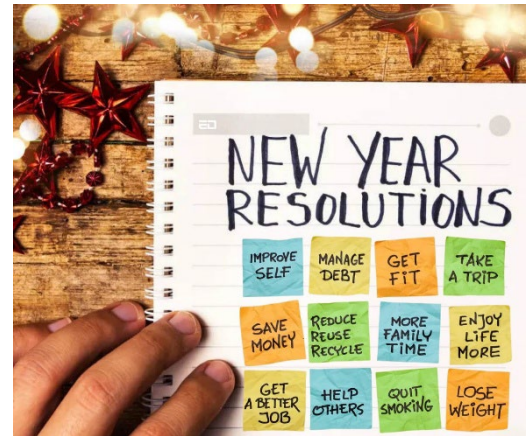 NEW YEAR
RESOLUTIONS
IMPROVE
SELF
MANAGE
DEBT
GET
FIT
TAKE
A TRIP
SAVE
MONEY
REDUCE
REUSE
RECYCLE
MORE
FAMILY
TIME
ENJOY
LIFE
MORE
GET
A BETTER
JOB
HELP
OTHERS
QUIT
SMOKING
LOSE
WEIGHT